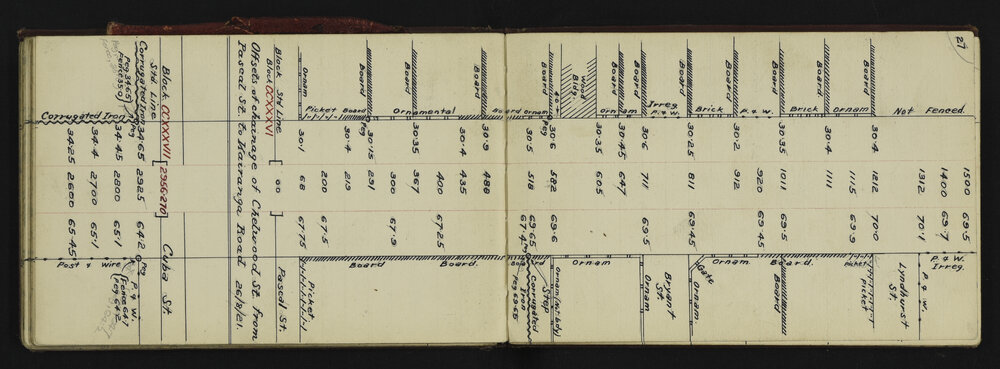 27
1500 69·5
Not Fenced 1400 69·7 P. & W. Irreg.
1312 70·1 P. & W.
Lyndhurst St.
30·4 1212 70·0 Picket
Ornam 1115 69·9 Picket
Board 30·4 1111
Brick
Board 30·35 1011 69·5 Board
P. & W. 920 69·45 Board.
Board 30·2 912
Brick Ornam.
Board 30·25 811 69·45 Ornam
Gate
Irreg. P. & W.
Board 30·6 711 69·5 Ornam
Bryant St.
Board 30·45 647
Ornam 30·35 605 Ornam
Wood Bldg.
40
Board 30·6 582 69·6 Ornam (Int. bdy)
Peg Step
Ornam 30·5 518 69·65 Corrugated Iron
Board 67·4 Peg 69·65
Board
Board 30·9 488
30·4 435 Board.
Ornamental 400 67·25
Board 30·35 367
300 67·9 Board
Board 30·15 231
Peg
Board 30·4 213
Picket 200 67·5 Picket
Ornam 30·1 68 67·75
Block Std Line [ 00 ] Pascal St.
Block CCXXXVI
Offsets of chainage of Chelwood St. from
Pascal St. to Kairanga Road 26/8/21.
Block CCXXXVII [2956270] Cuba St.
Std. Line
Corrugated Iron 34·65 2925 64·2 P. & W.
Peg 34·65 Peg Peg Fence 64·1
Fence 35·0 Peg 64·2
34·45 2800 65·1
34·4 2700 65·1 Post & Wire
Corrugated Iron 34·25 2600 65·45